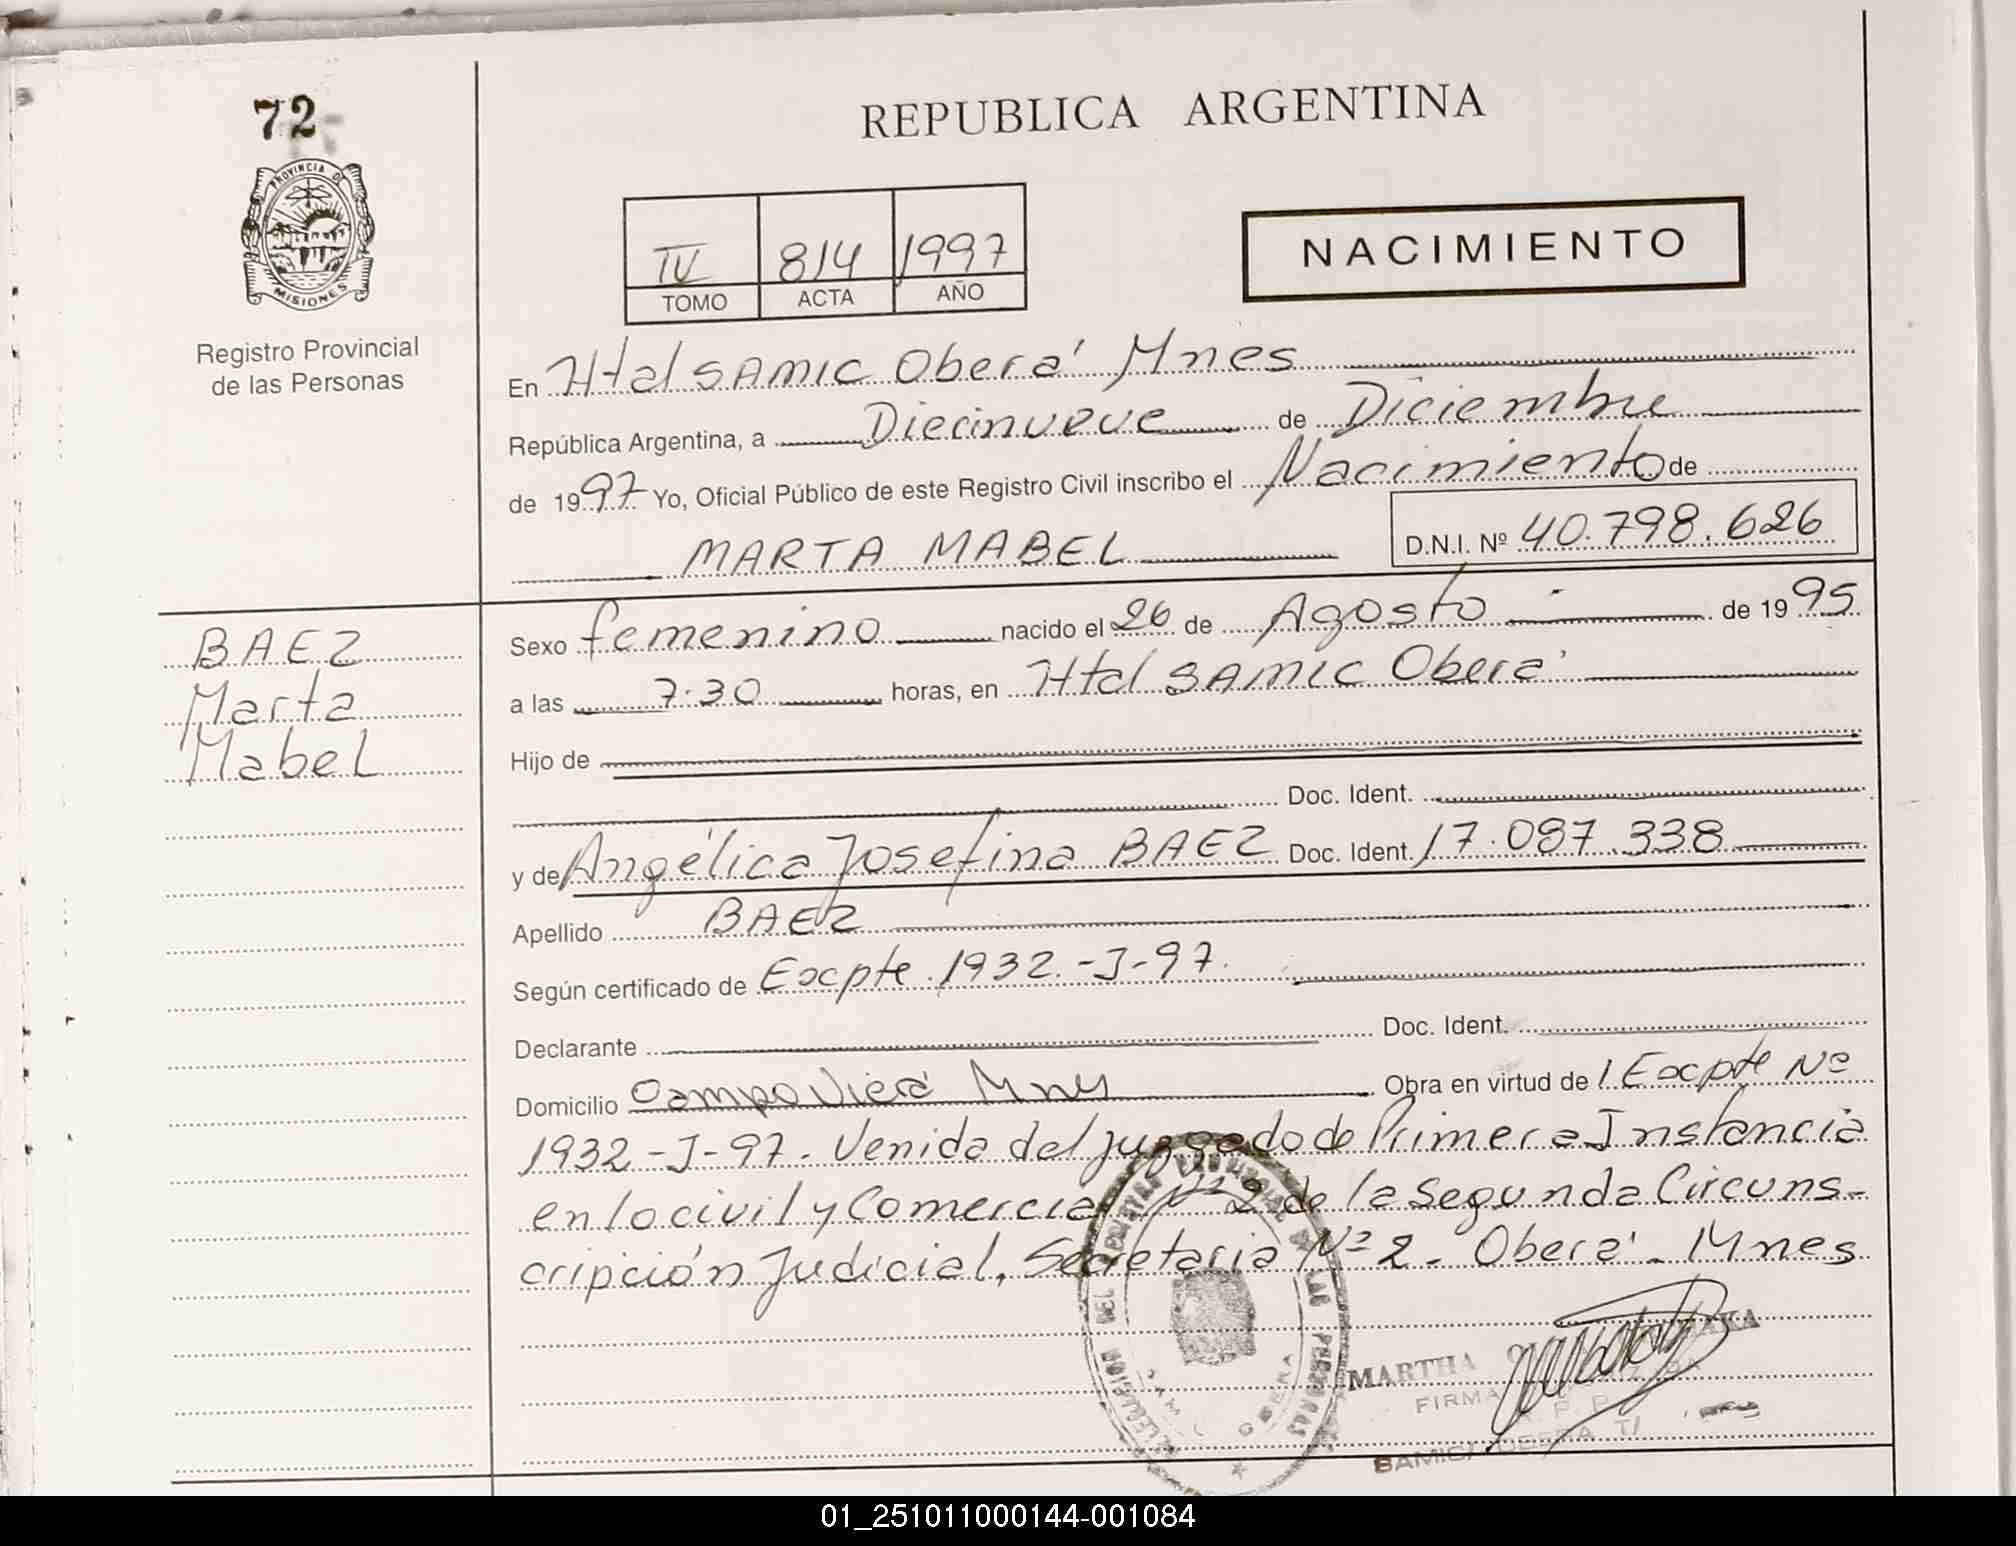 72
REPUBLICA ARGENTINA
PROVINCIA DE
MISIONES
Registro Provincial
de las Personas
IV 814 1997
TOMO ACTA AÑO
NACIMIENTO
En Htal SAMIC Oberá Mnes
República Argentina, a Diecinueve de Diciembre
de 1997 Yo, Oficial Público de este Registro Civil inscribo el Nacimiento de
MARTA MABEL D.N.I. Nº 40.798.626
BAEZ
Marta
Mabel
Sexo femenino nacido el 26 de Agosto de 1995
a las 7.30 horas, en Htal SAMIC Oberá
Hijo de
Doc. Ident.
y de Angélica Josefina BAEZ Doc. Ident. 17.087.338
Apellido BAEZ
Según certificado de Excpte 1932.-J-97.
Declarante Doc. Ident.
Domicilio Campo Viera Mnes Obra en virtud de Excpte Nº
1932-J-97. Venida del juzgado de Primera Instancia
en lo civil y Comercial Nº 2 de la Segunda Circuns-
cripción Judicial, Secretaria Nº 2. Oberá. Mnes
DELEGACION DEL REGISTRO PROVINCIAL DE LAS PERSONAS
OBERA
MARTHA
FIRMA
01_251011000144-001084